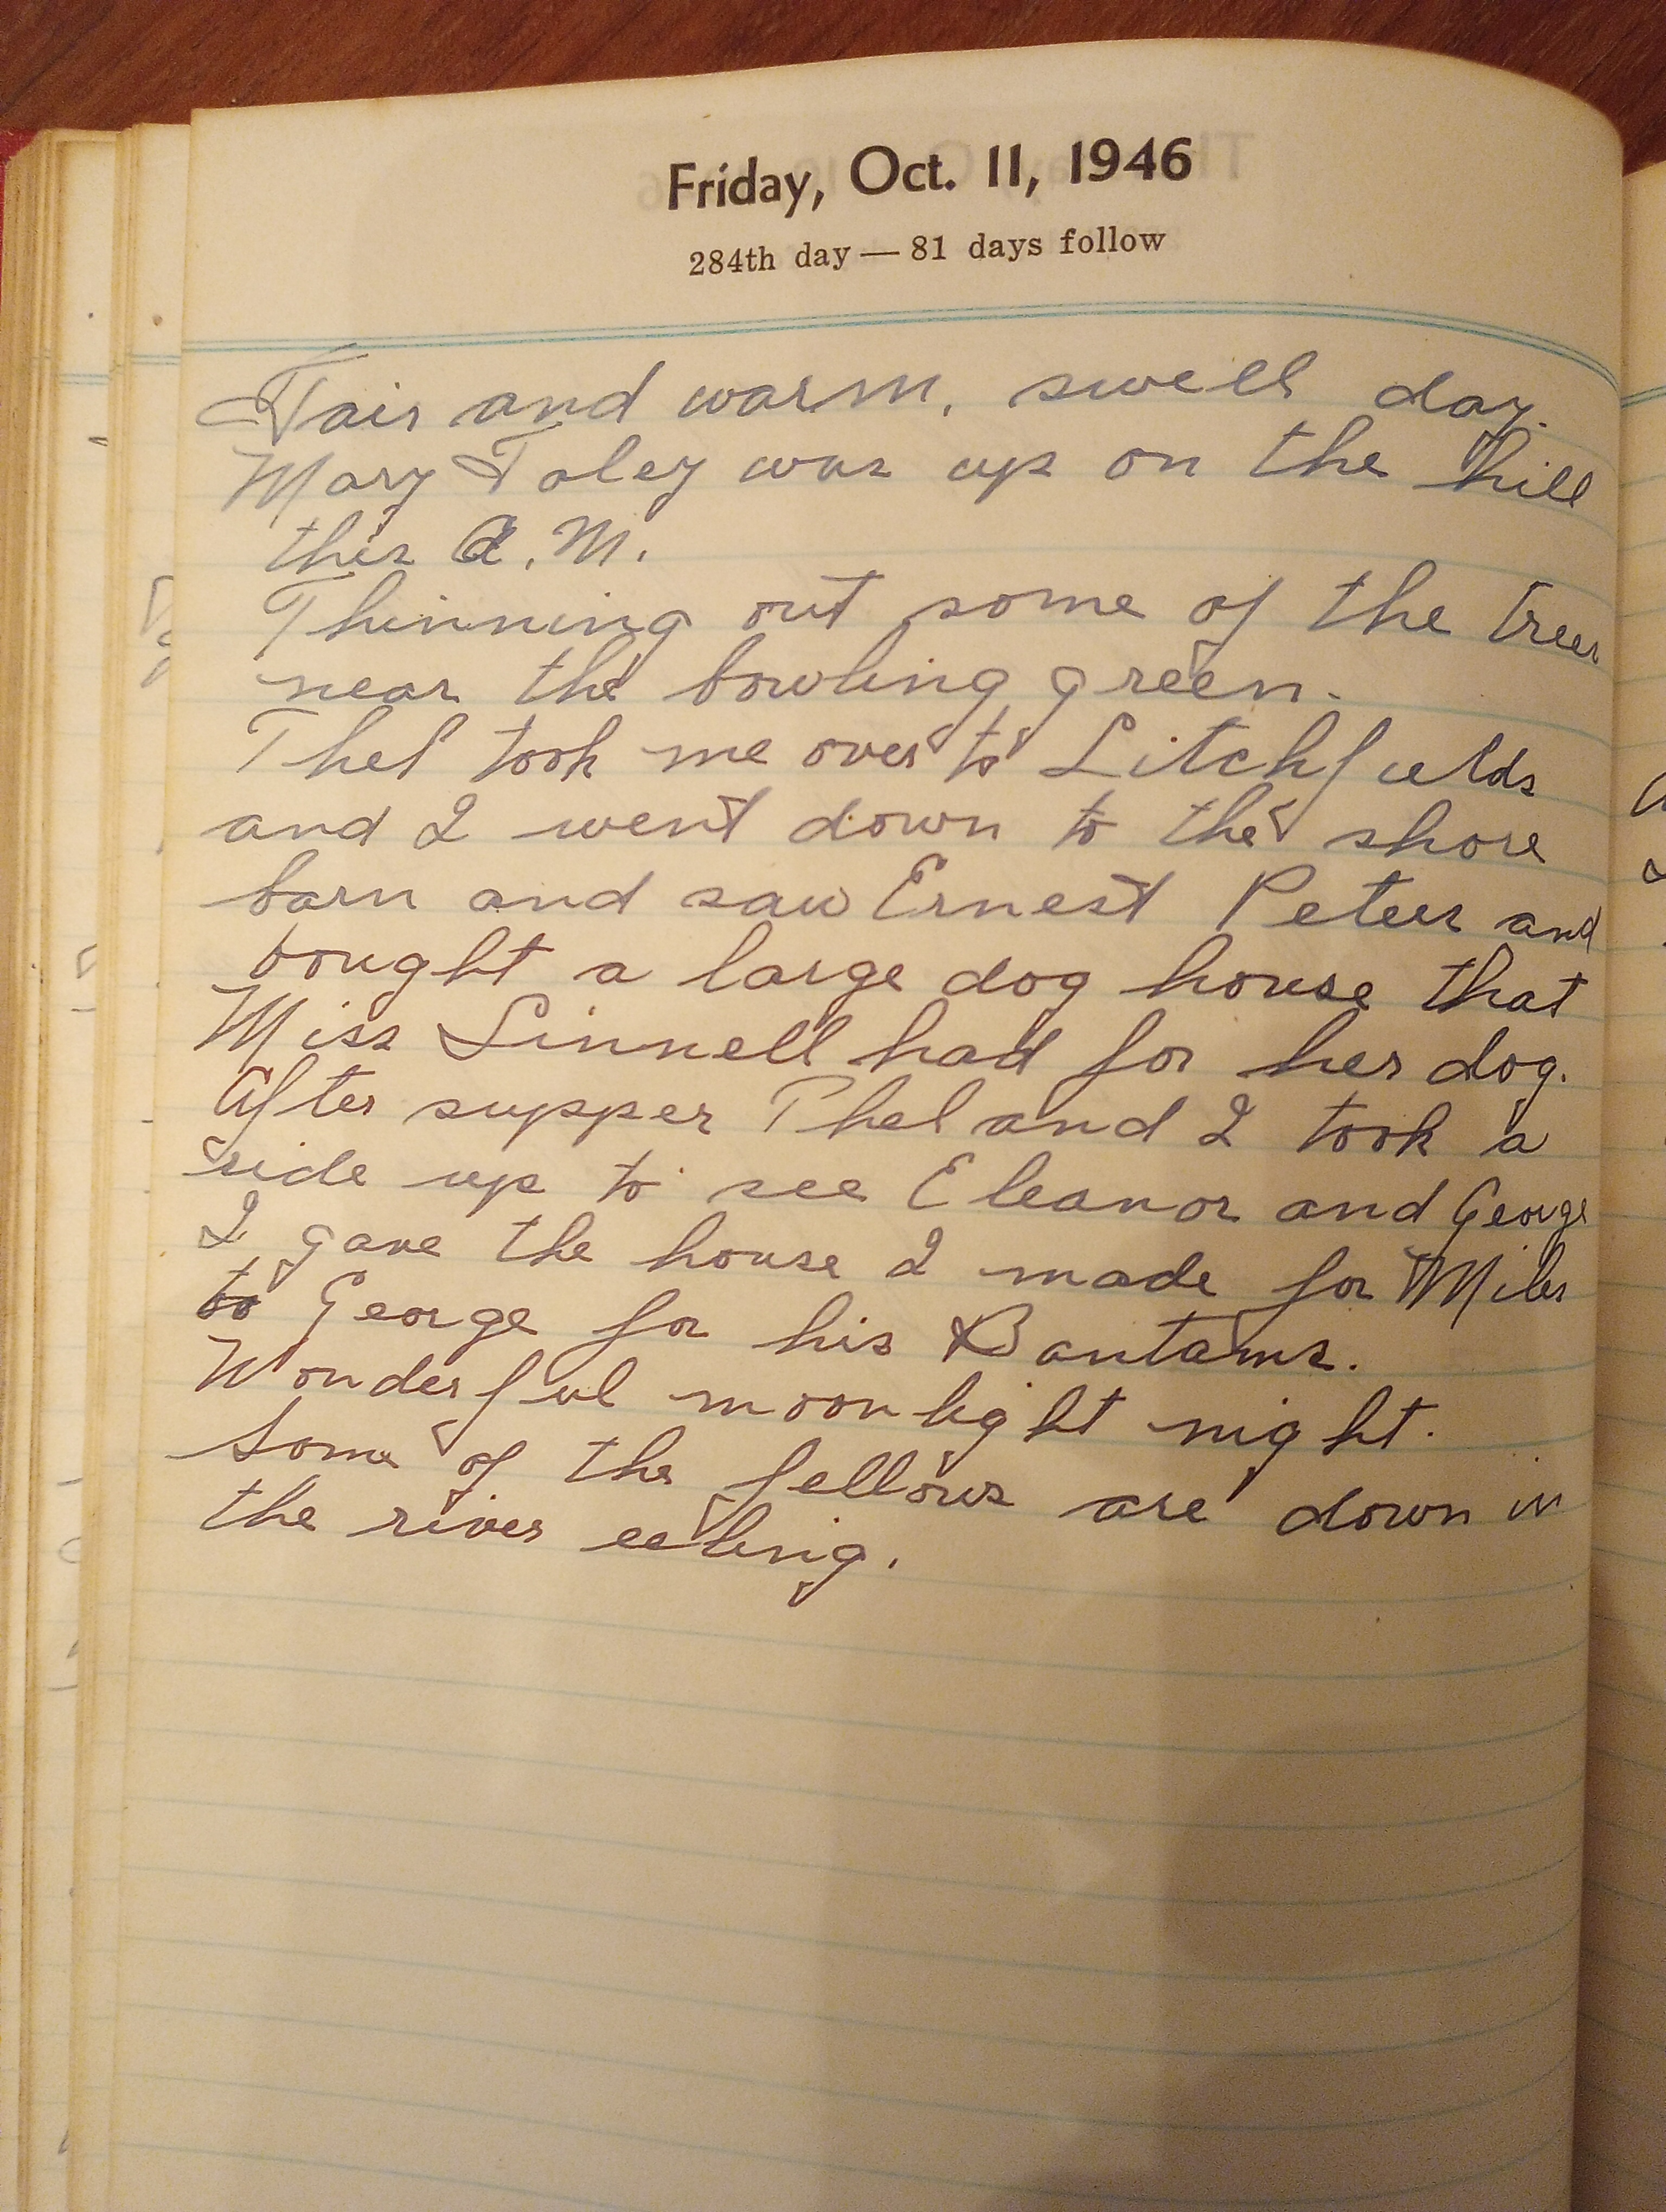 Friday, Oct. 11, 1946
284th day — 81 days follow
Fair and warm, swell day.
Mary Foley was up on the hill
this A.M.
Thinning out some of the trees
near the bowling green.
Thel took me over to Litchfields
and I went down to the shore
barn and saw Ernest Peters and
bought a large dog house that
Miss Linnell had for her dog.
After supper Thel and I took a
ride up to see Eleanor and George
I gave the house I made for Miles
to George for his Bantams.
Wonderful moonlight night.
Some of the fellows are down in
the river eeling.